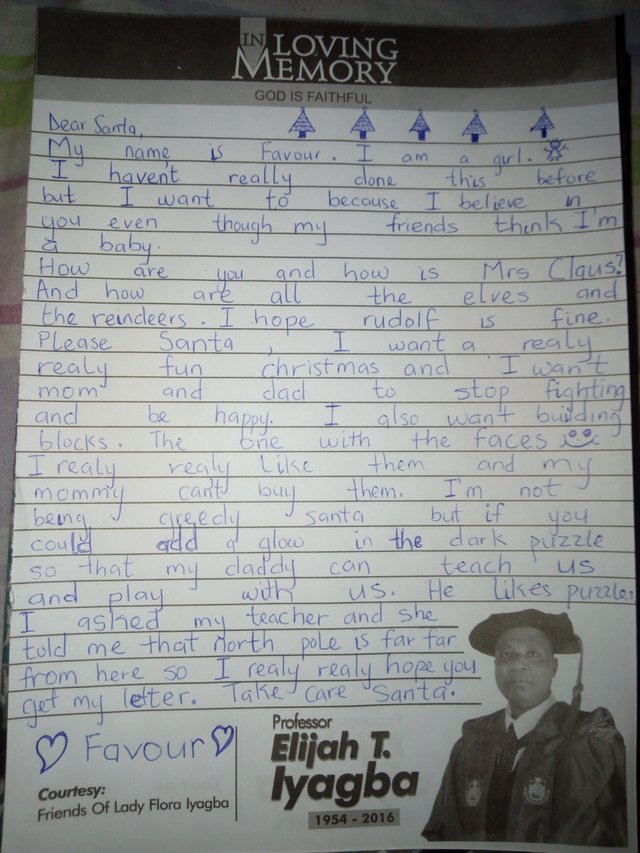 IN LOVING
MEMORY
GOD IS FAITHFUL
Dear Santa,
My name is Favour. I am a girl.
I haven't really done this before
but I want to because I believe in
you even though my friends think I'm
a baby.
How are you and how is Mrs Claus?
And how are all the elves and
the reindeers. I hope rudolf is fine.
Please Santa, I want a realy
realy fun christmas and I wan't
mom and dad to stop fighting
and be happy. I also want building
blocks. The one with the faces
I realy realy like them and my
mommy can't buy them. I'm not
being greedy santa but if you
could add a glow in the dark puzzle
so that my daddy can teach us
and play with us. He likes puzzles
I asked my teacher and she
told me that north pole is far far
from here so I realy realy hope you
get my letter. Take care Santa.
Favour
Courtesy:
Friends Of Lady Flora Iyagba
Professor
Elijah T.
Iyagba
1954 - 2016